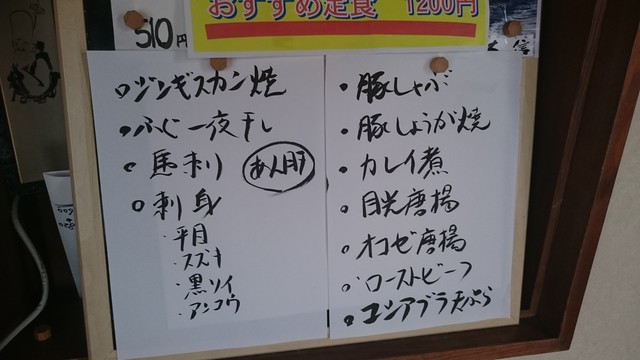 おすすめ定食 1200円
510円
・ジンギスカン焼
・ふじ一夜干し
・馬刺 あん肝
・刺身
・平目
・スズキ
・黒ソイ
・アンコウ
・豚しゃぶ
・豚しょうが焼
・カレイ煮
・目光唐揚
・オコゼ唐揚
・ローストビーフ
・コシアブラ天ぷら